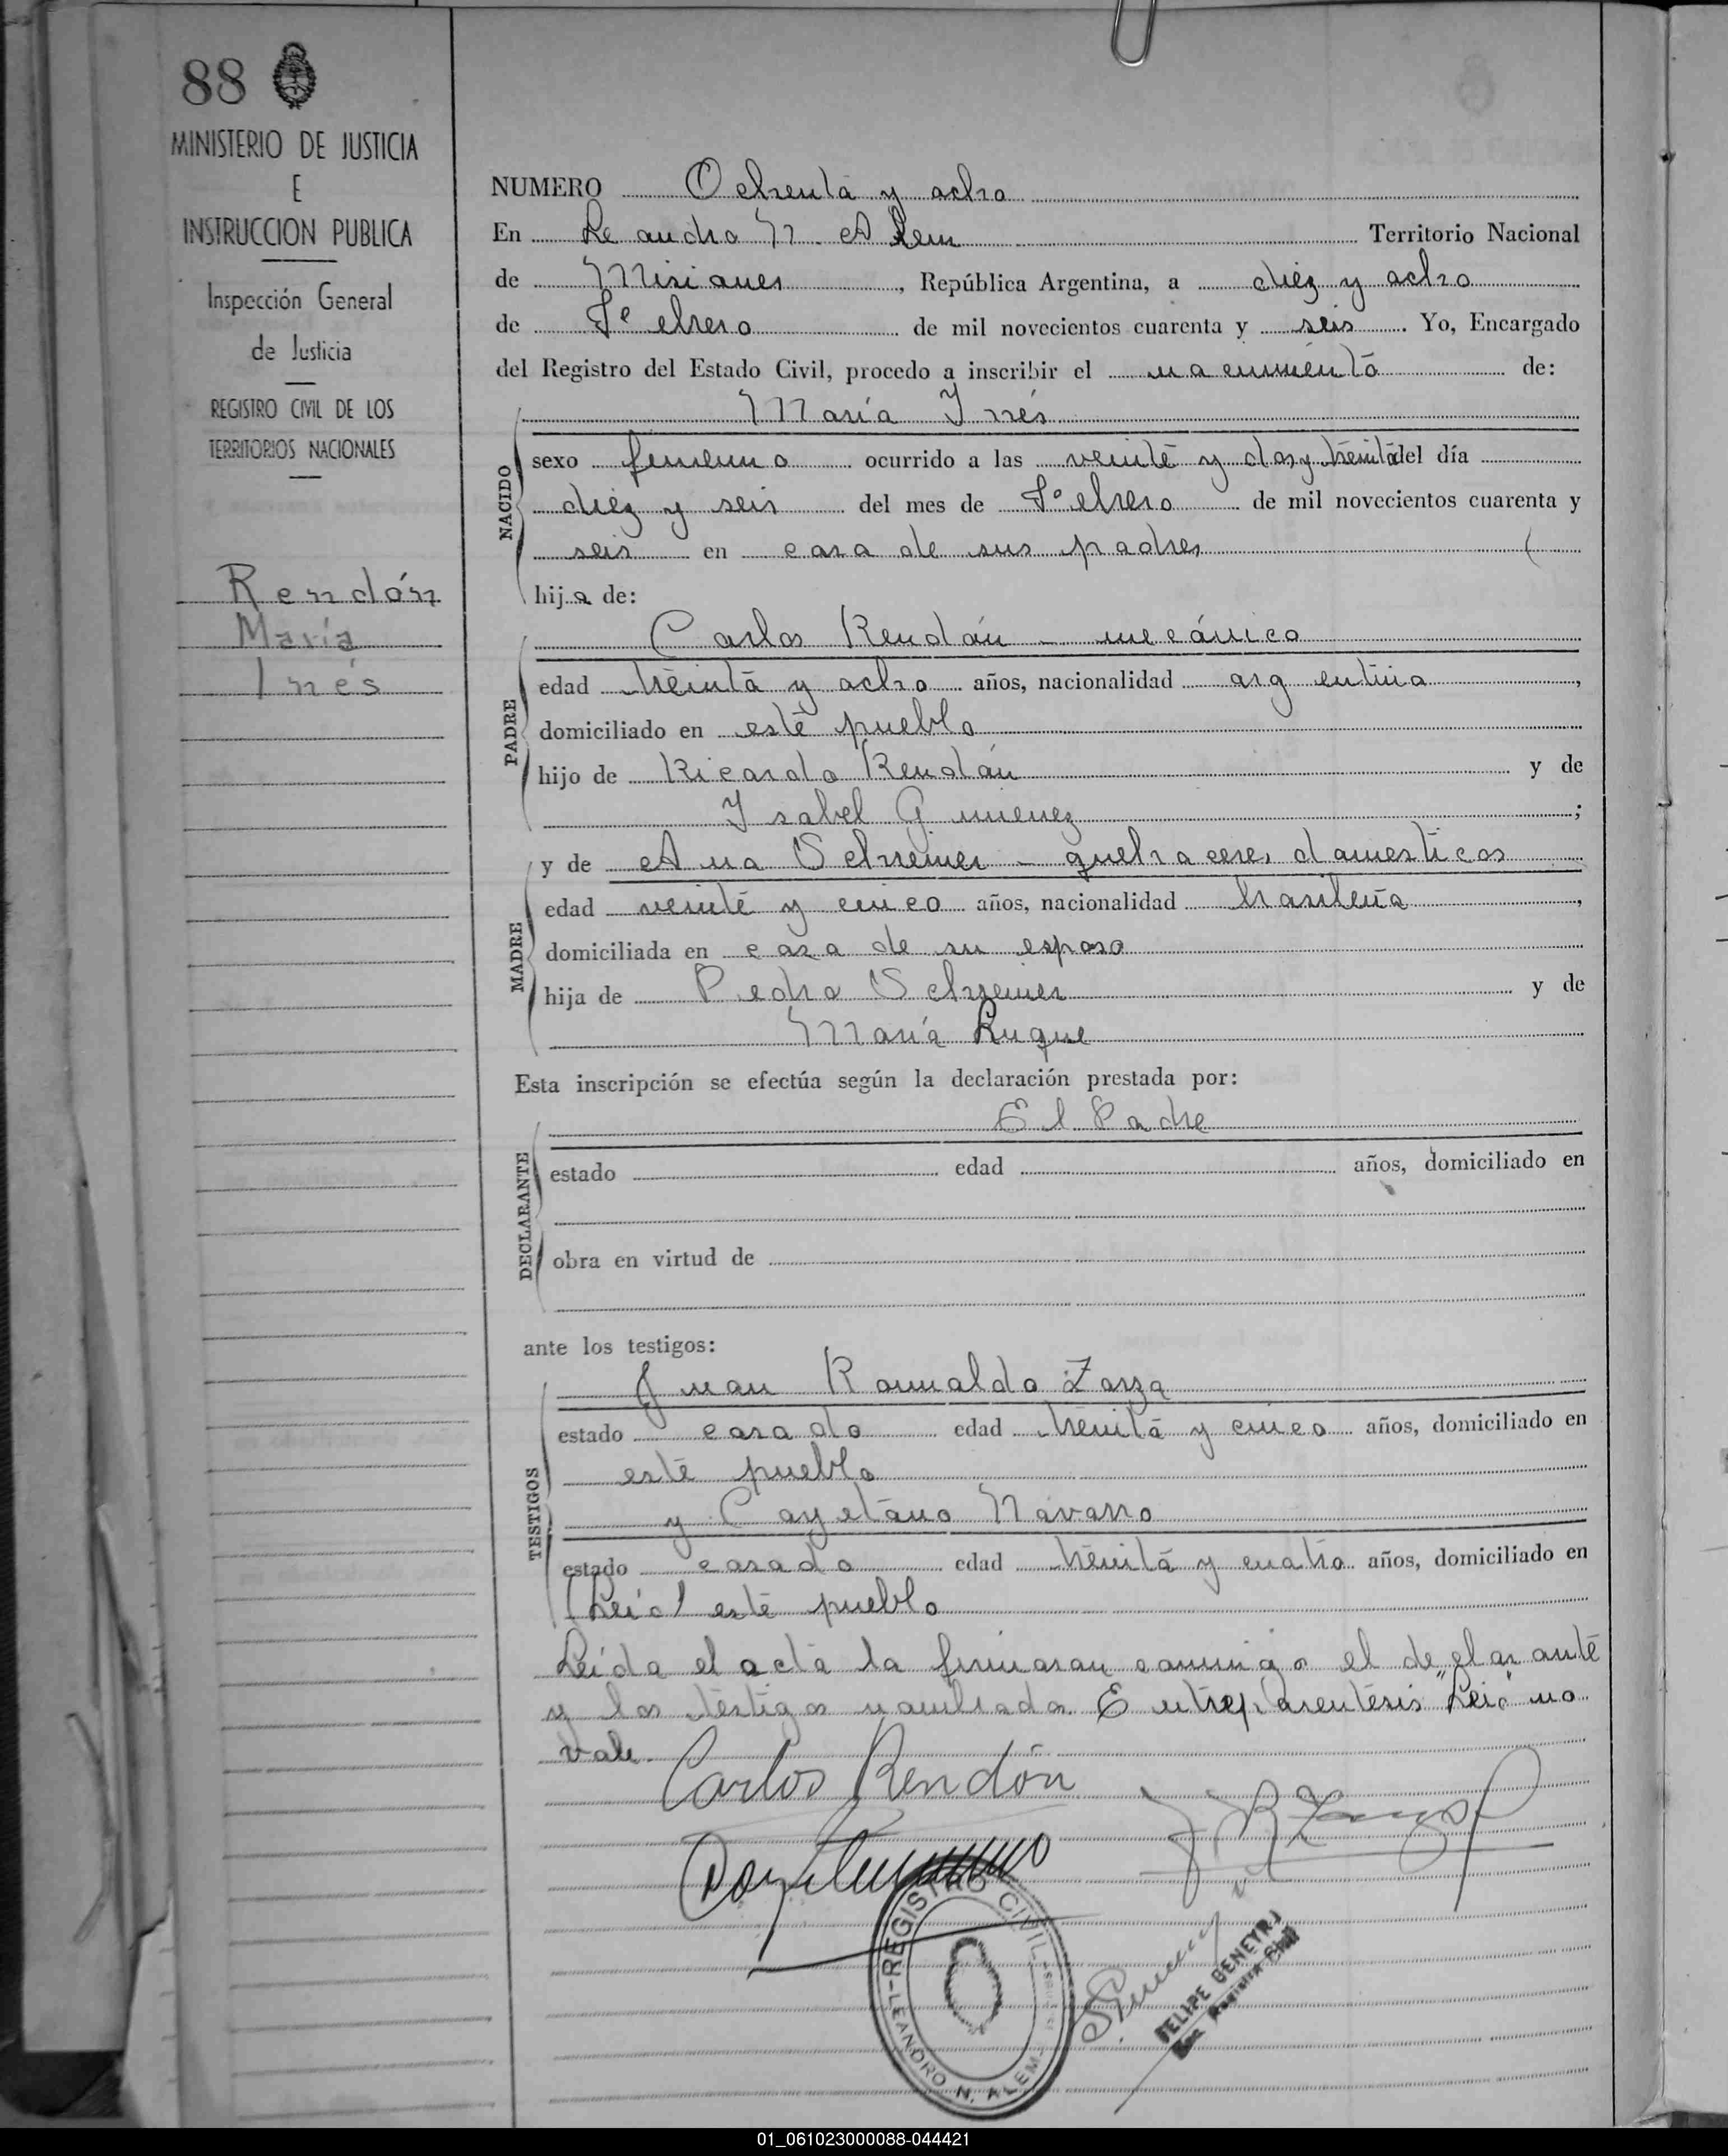 88
MINISTERIO DE JUSTICIA
E
INSTRUCCION PUBLICA
Inspección General
de Justicia
REGISTRO CIVIL DE LOS
TERRITORIOS NACIONALES
Rendón
María
Inés
NUMERO Ochenta y ocho
En Leandro N. Alem Territorio Nacional
de Misiones, República Argentina, a diez y ocho
de Febrero de mil novecientos cuarenta y seis. Yo, Encargado
del Registro del Estado Civil, procedo a inscribir el nacimiento de:
María Inés
NACIDO
sexo femenino ocurrido a las veinte y dos y treinta del día
diez y seis del mes de Febrero de mil novecientos cuarenta y
seis en casa de sus padres
hija de:
PADRE
Carlos Rendón - mecánico
edad treinta y ocho años, nacionalidad argentina,
domiciliado en este pueblo
hijo de Ricardo Rendón y de
Isabel Gimenez;
MADRE
y de Ana Schreiner - quehaceres domesticos
edad veinte y cinco años, nacionalidad brasileña,
domiciliada en casa de su esposo
hija de Pedro Schreiner y de
María Luque
Esta inscripción se efectúa según la declaración prestada por:
DECLARANTE
El Padre
estado edad años, domiciliado en
obra en virtud de
ante los testigos:
TESTIGOS
Juan Romualdo Zarza
estado casado edad treinta y cinco años, domiciliado en
este pueblo
y Cayetano Navarro
estado casado edad treinta y cuatro años, domiciliado en
(Leid) este pueblo
Leída el acta la firmaran conmigo el declarante
y los testigos nombrados. Entreparentesis "Leid" no
vale.
Carlos Rendón
REGISTRO CIVIL
LEANDRO N. ALEM
FELIPE BENEYRJ
Registro Civil
01_061023000088-044421